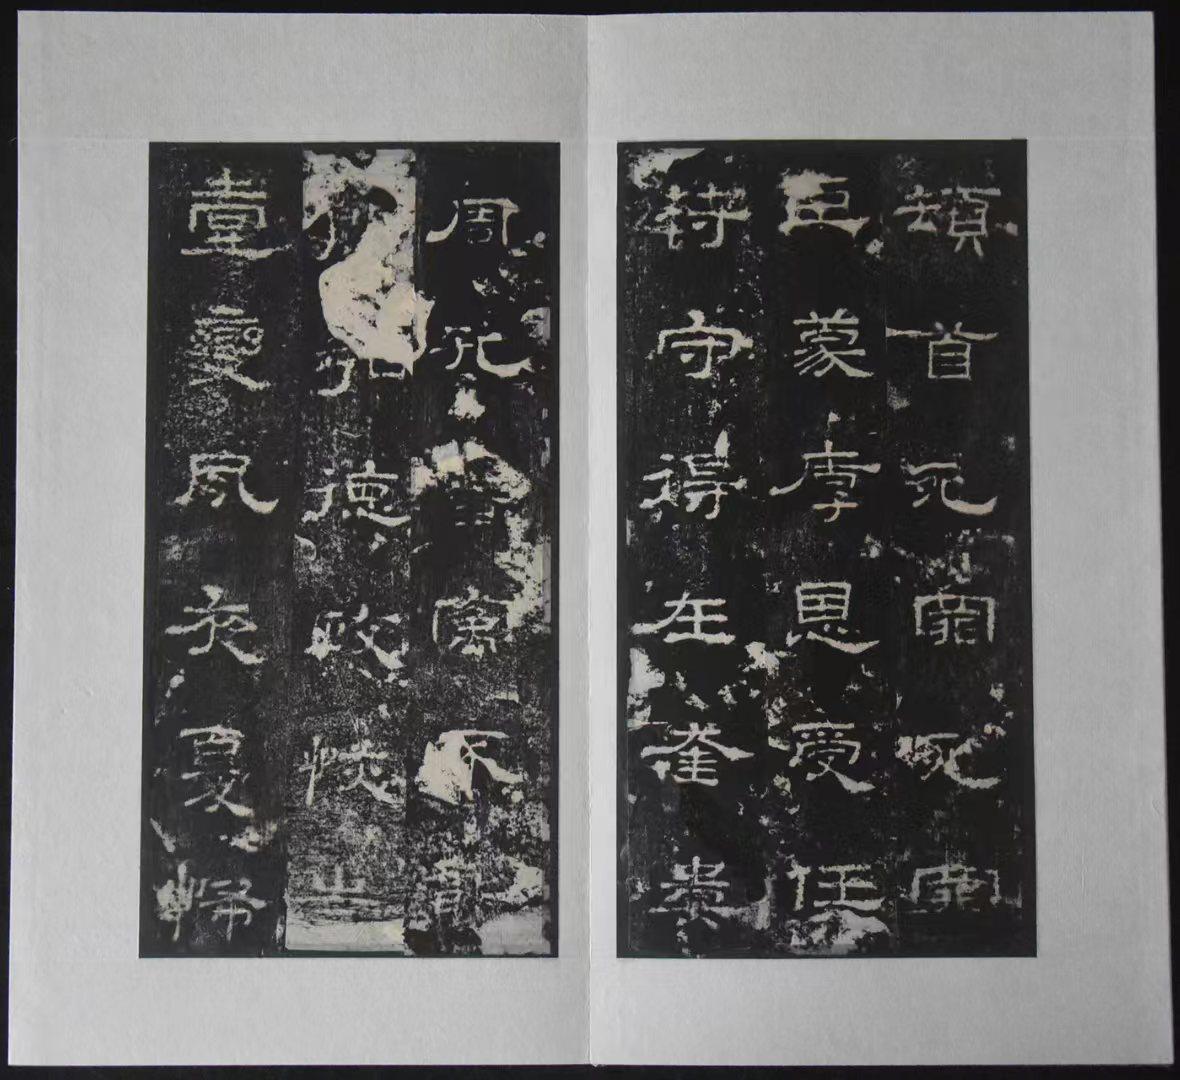 頓首死罪死罪
臣蒙厚恩受任
符守得在奎婁
周孔舊寓不能
弘德政恢崇
壹變夙夜憂怖